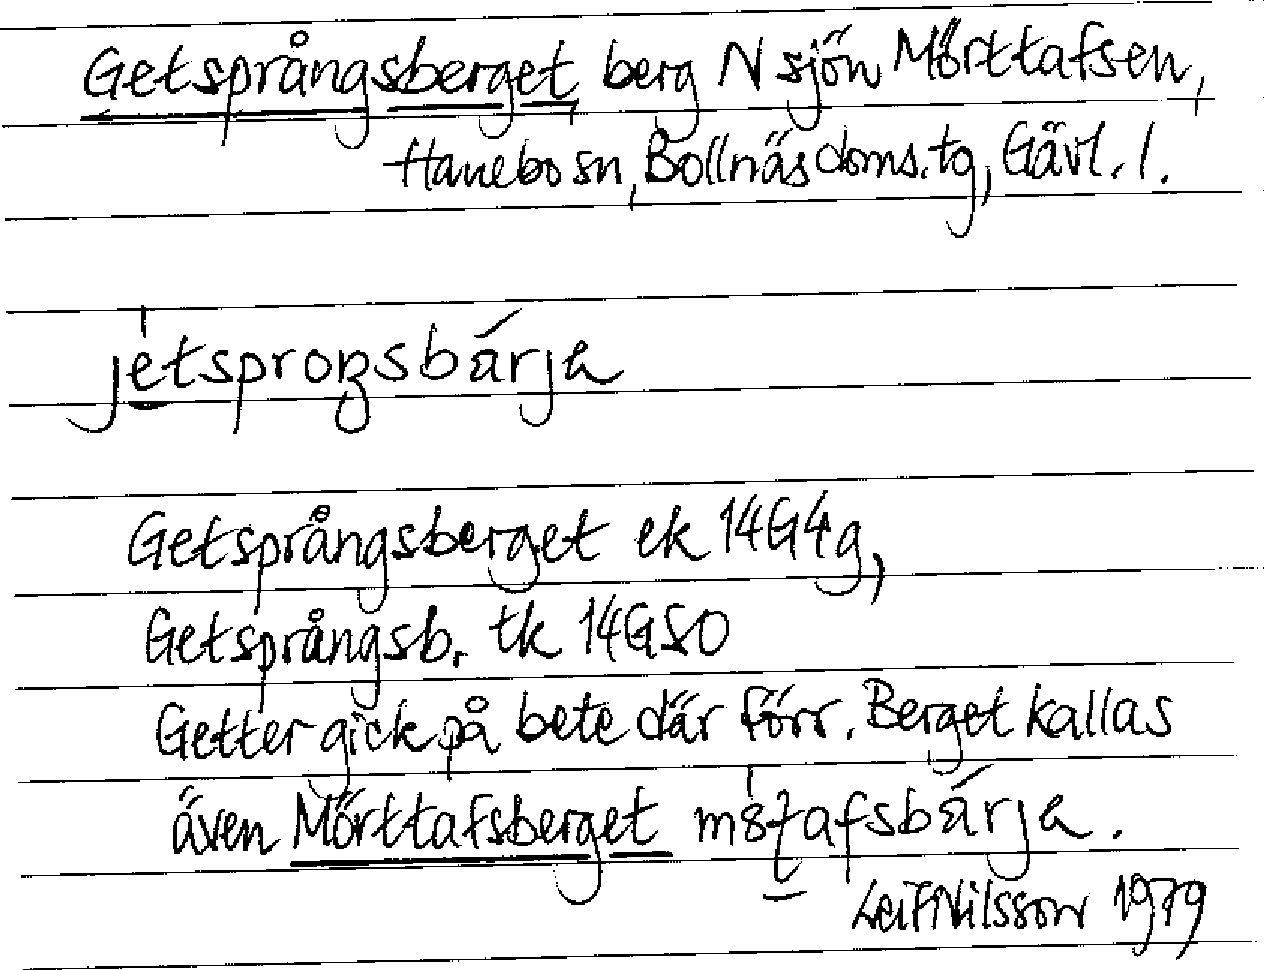 Getsprångsberget berg N sjön Mörttafsen,
Hanebo sn, Bollnäs doms.tg, Gävl. l.
jetsproŋsbárja
Getsprångsberget ek 14G4g,
Getsprångsb. tk 14GSO
Getter gick på bete där förr. Berget kallas
även Mörttafsberget
Leif Nilsson 1979